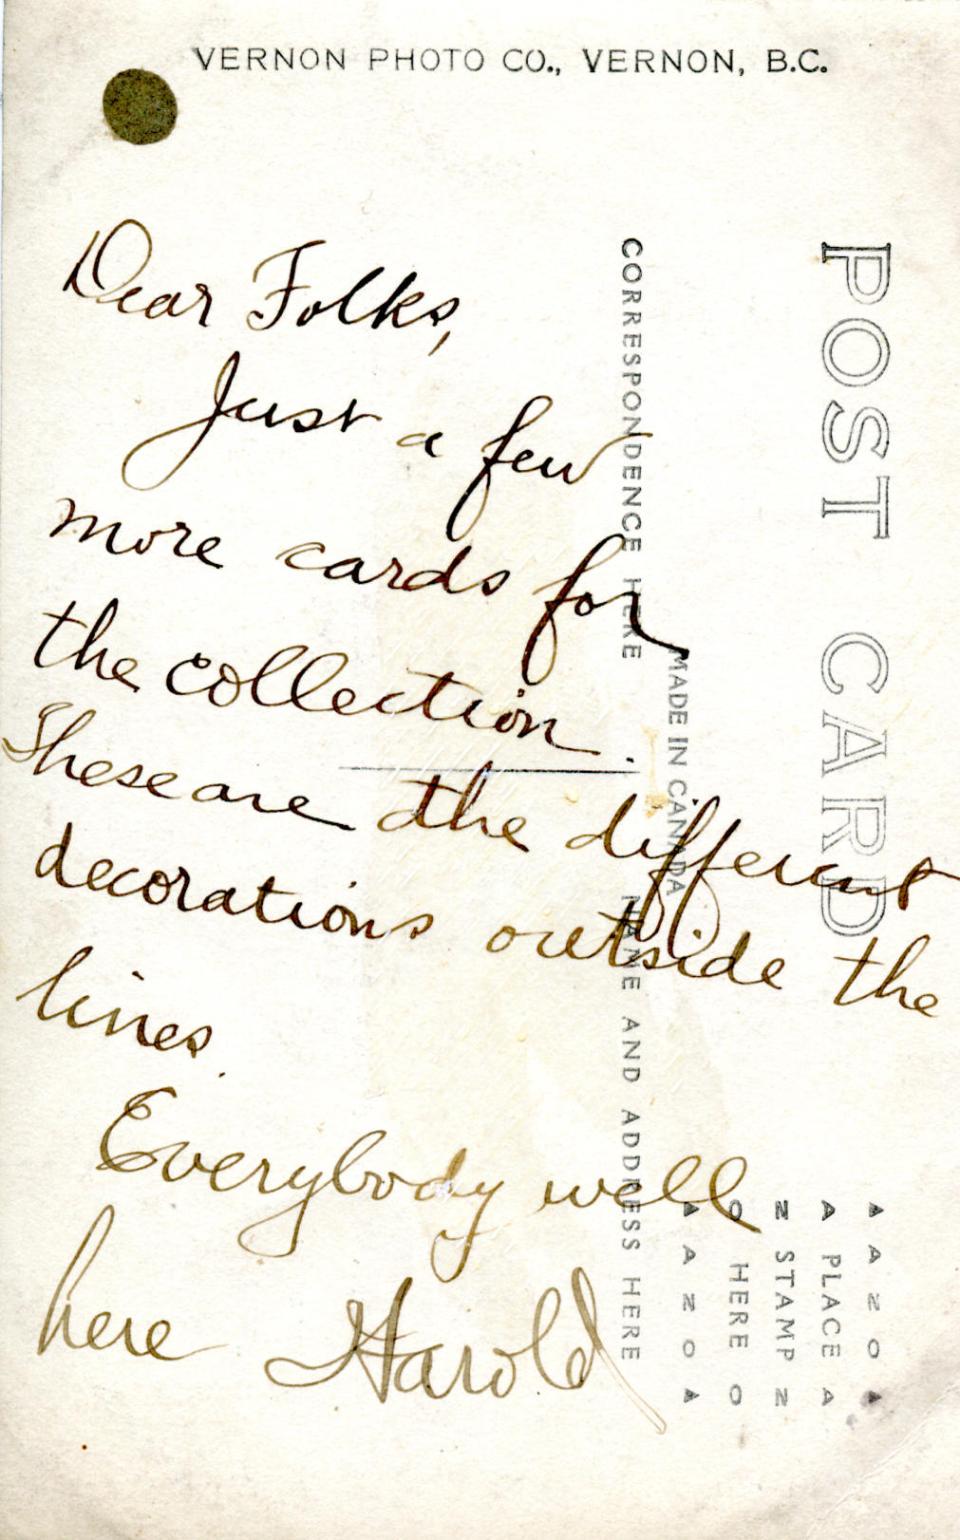 VERNON PHOTO CO., VERNON, B.C.
Dear Folks,
Just a few
more cards for
the collection.
These are the different
decorations outside the
lines.
Everybody well
here Harold
CORRESPONDENCE HERE
NAME AND ADDRESS HERE
MADE IN CANADA
POST CARD
▲ A Z O ▲
A PLACE A
Z STAMP Z
O HERE O
▲ A Z O ▲